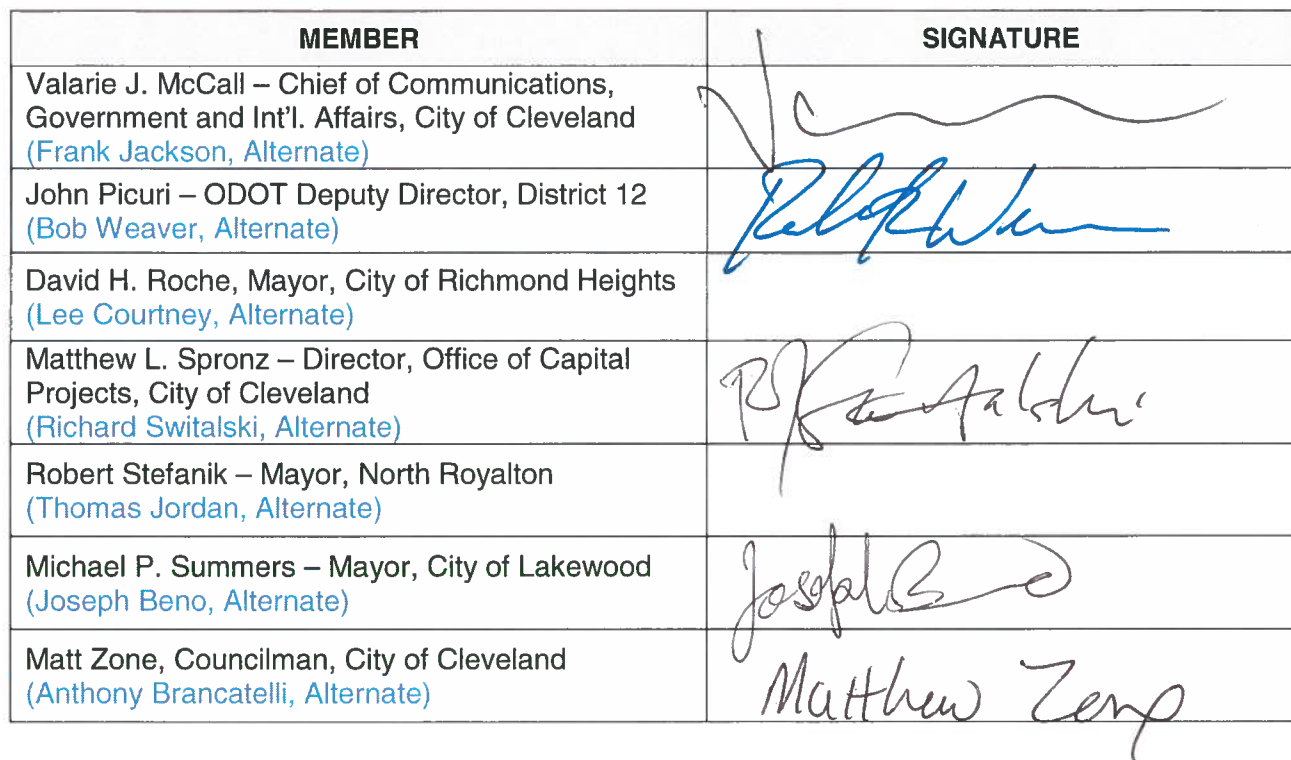 MEMBER
SIGNATURE
Valarie J. McCall – Chief of Communications,
Government and Int'l. Affairs, City of Cleveland
(Frank Jackson, Alternate)
John Picuri – ODOT Deputy Director, District 12
(Bob Weaver, Alternate)
David H. Roche, Mayor, City of Richmond Heights
(Lee Courtney, Alternate)
Matthew L. Spronz – Director, Office of Capital
Projects, City of Cleveland
(Richard Switalski, Alternate)
Robert Stefanik – Mayor, North Royalton
(Thomas Jordan, Alternate)
Michael P. Summers – Mayor, City of Lakewood
(Joseph Beno, Alternate)
Joseph Beno
Matt Zone, Councilman, City of Cleveland
(Anthony Brancatelli, Alternate)
Matthew Zone